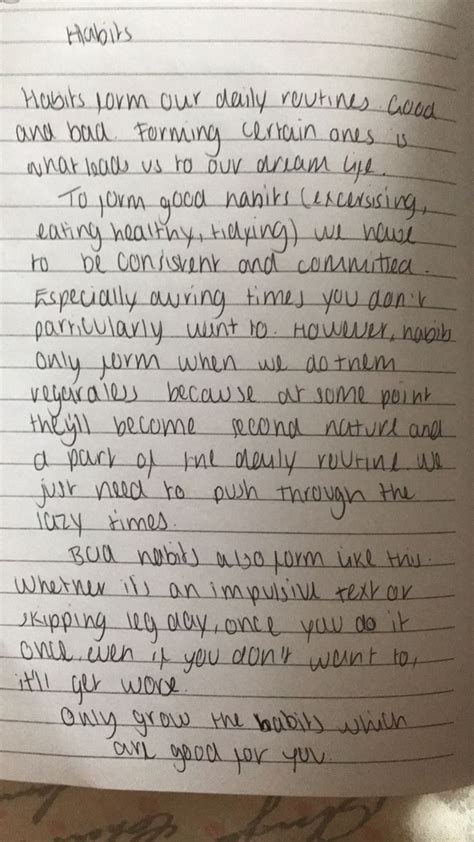 Habits
Habits form our daily routines. Good
and bad. Forming certain ones is
what leads us to our dream life.
To form good habits (excersising,
eating healthy, tidying) we have
to be consistent and committed.
Especially during times you don't
particularly want to. However, habits
only form when we do them
regardless because at some point
they'll become second nature and
a part of the daily routine. We
just need to push through the
lazy times.
Bad habits also form like this.
Whether it's an impulsive text or
skipping leg day, once you do it
once, even if you don't want to,
it'll get worse.
Only grow the habits which
are good for you.